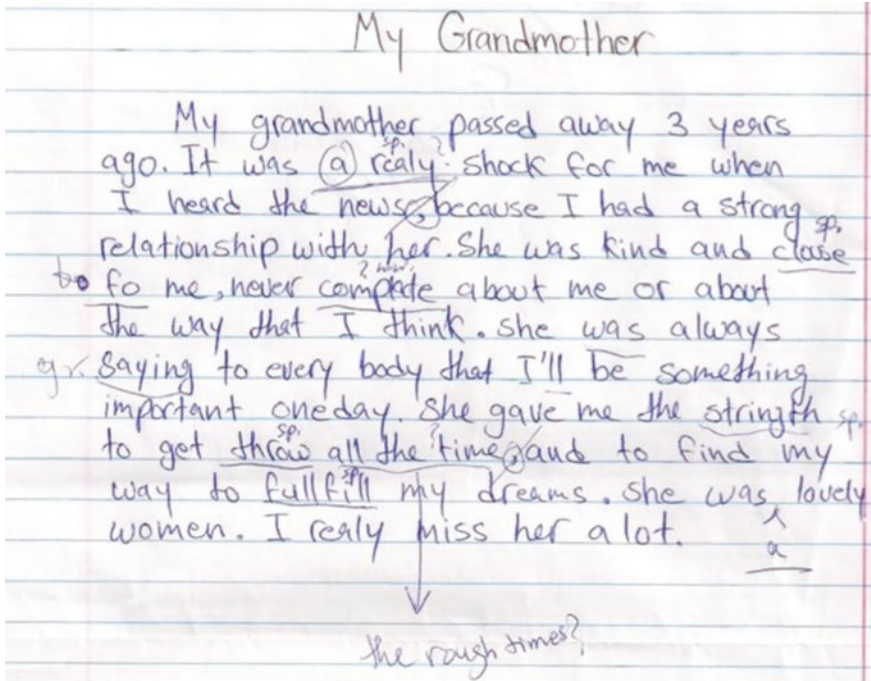 My Grandmother
My grandmother passed away 3 years
sp. ?
ago. It was a realy shock for me when
I heard the news, because I had a strong
sp.
relationship with her. She was kind and clase
to fo me, never complate about me or about
the way that I think. she was always
gr. saying to every body that I'll be something
important oneday. She gave me the stringth sp.
sp. ?
to get throw all the time, and to find my
sp.
way to fullfill my dreams. she was lovely
a
women. I realy miss her a lot.
the rough times?